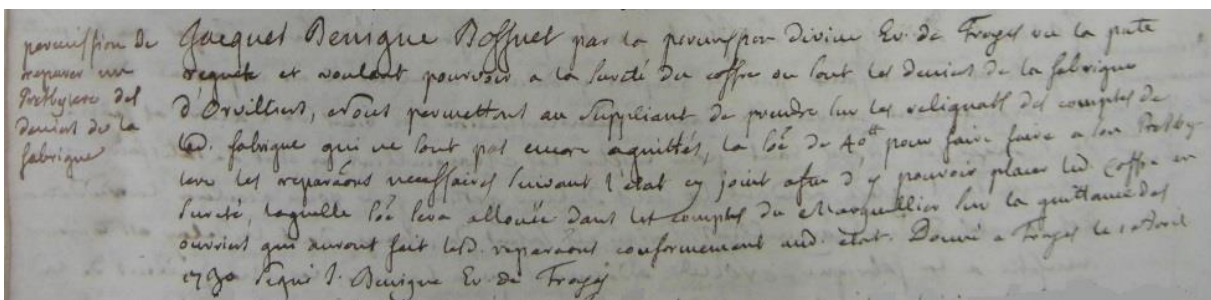 permission de
reparer un
Presbytere des
deniers de la
fabrique
Jacques Benigne Bossuet par la permission divine Ev. de Troyes vu la pnte
requete et voulant pourvoir a la sureté du coffre ou sont les deniers de la fabrique
d'Orvilliers, Nous permettons au suppliant de prendre sur les reliquats des comptes de
lad. fabrique qui ne sont pas encore aquittés, la sõe de 40tt pour faire faire a son Presby-
tere les reparaõns necessaires suivant l'état cy joint afin d'y pouvoir placer led. coffre en
sureté, laquelle sõe sera allouée dans les comptes du Marguillier sur la quittance des
ouvriers qui auront fait lesd. reparaõns conformement aud. état. Donné a Troyes le 1 Avril
1730 signé J. Benigne Ev. de Troyes